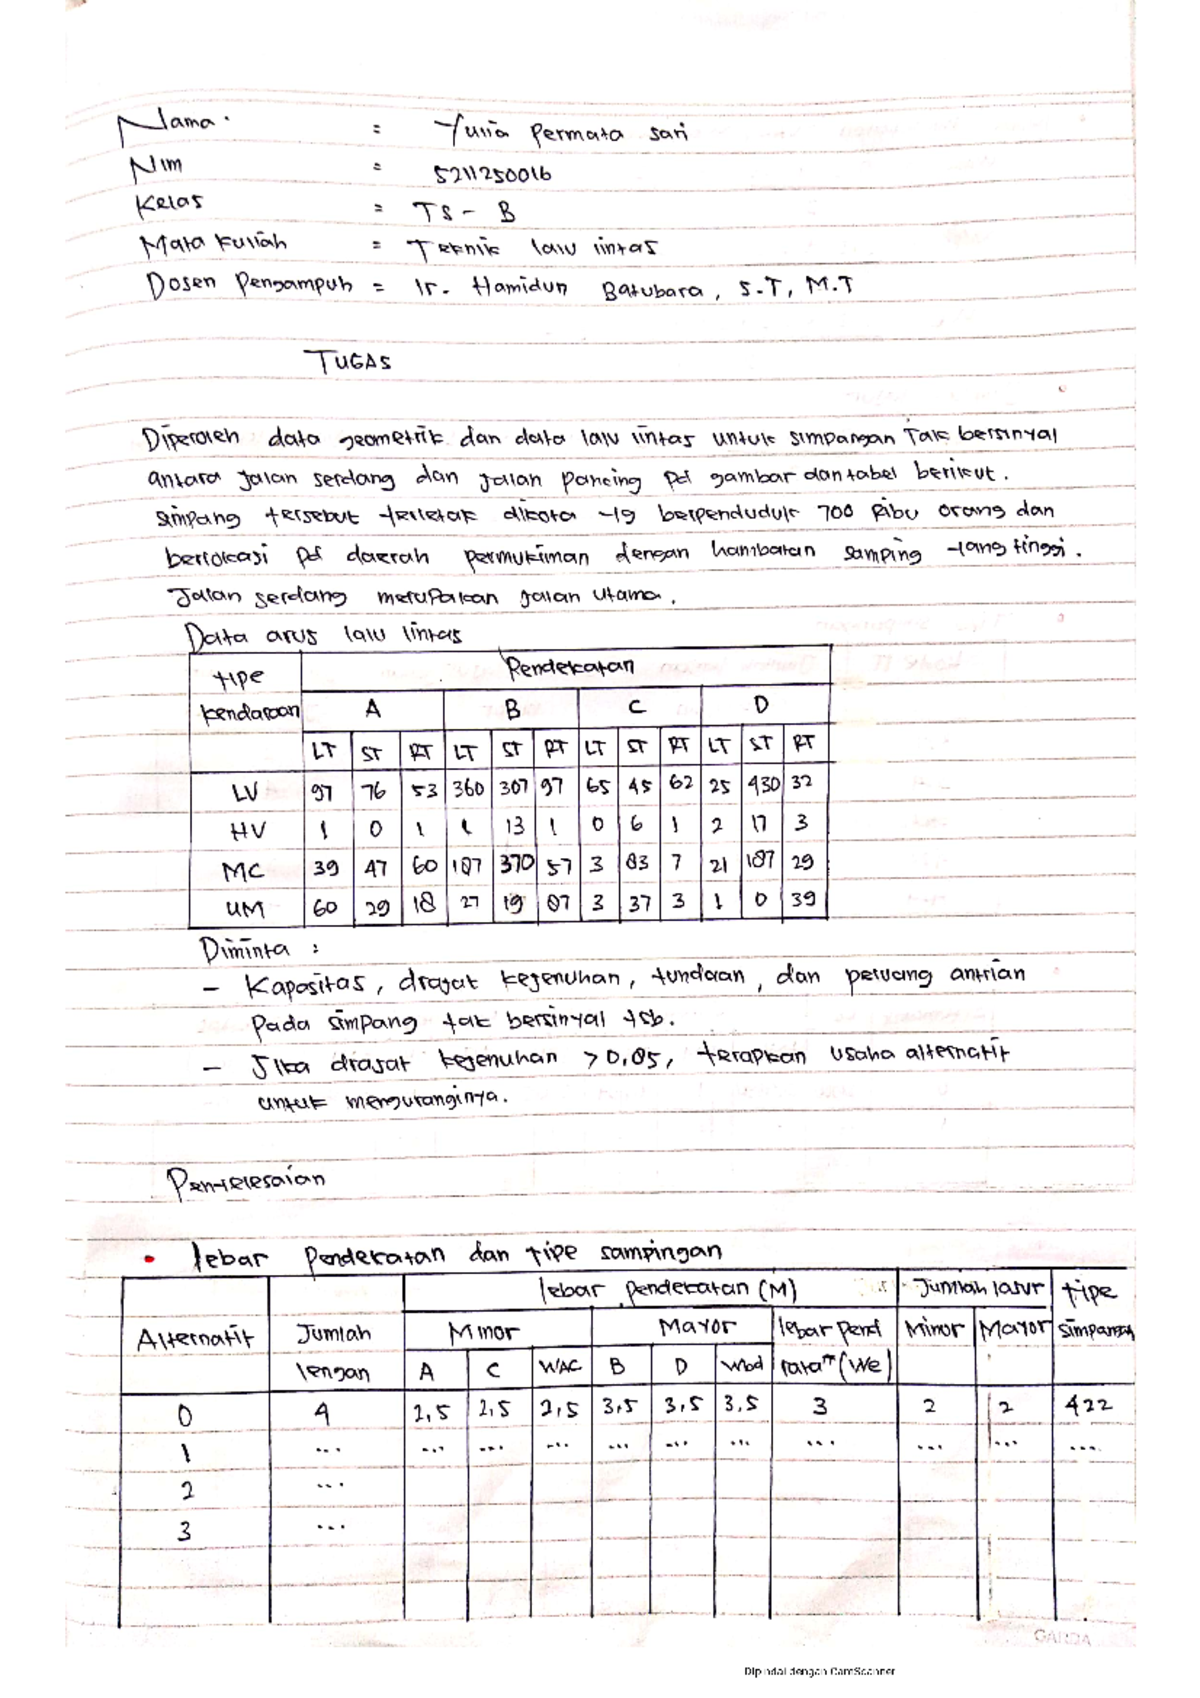 Nama : Yulia Permata Sari
Nim = 5211250016
Kelas = TS - B
Mata Kuliah = Teknik lalu lintas
Dosen Pengampuh = Ir. Hamidun Batubara, S.T, M.T
TUGAS
Diperoleh data geometrik dan data lalu lintas untuk simpangan Tak bersinyal
antara Jalan serdang dan Jalan Pancing pd gambar dan tabel berikut.
Simpang tersebut terletak dikota yg berpenduduk 700 Ribu orang dan
berlokasi pd daerah permukiman dengan hambatan samping yang tinggi.
Jalan serdang merupakan jalan utama.
Data arus lalu lintas
tipe kendaraan Pendekatan
A B C D
LT ST RT LT ST RT LT ST RT LT ST RT
LV 97 76 53 360 307 97 65 45 62 25 430 32
HV 1 0 1 1 13 1 0 6 1 2 17 3
MC 39 47 60 187 370 57 3 83 7 21 187 29
UM 60 29 18 27 19 87 3 37 3 1 0 39
Diminta :
- Kapasitas, drajat kejenuhan, tundaan, dan peluang antrian
Pada simpang tak bersinyal tsb.
- Jika drajat kejenuhan > 0,85, terapkan usaha alternatif
untuk menguranginya.
Penyelesaian
• lebar Pendekatan dan tipe sampingan
Alternatif Jumlah lengan lebar pendekatan (M) Jumlah lajur tipe simpangan
Minor Mayor lebar pend rata" (We) Minor Mayor
A C WAC B D Wbd
0 4 2,5 2,5 2,5 3,5 3,5 3,5 3 2 2 422
1 ... ... ... ... ... ... ... ... ... ... ...
2 ...
3 ...
GARDA
Dipindai dengan CamScanner